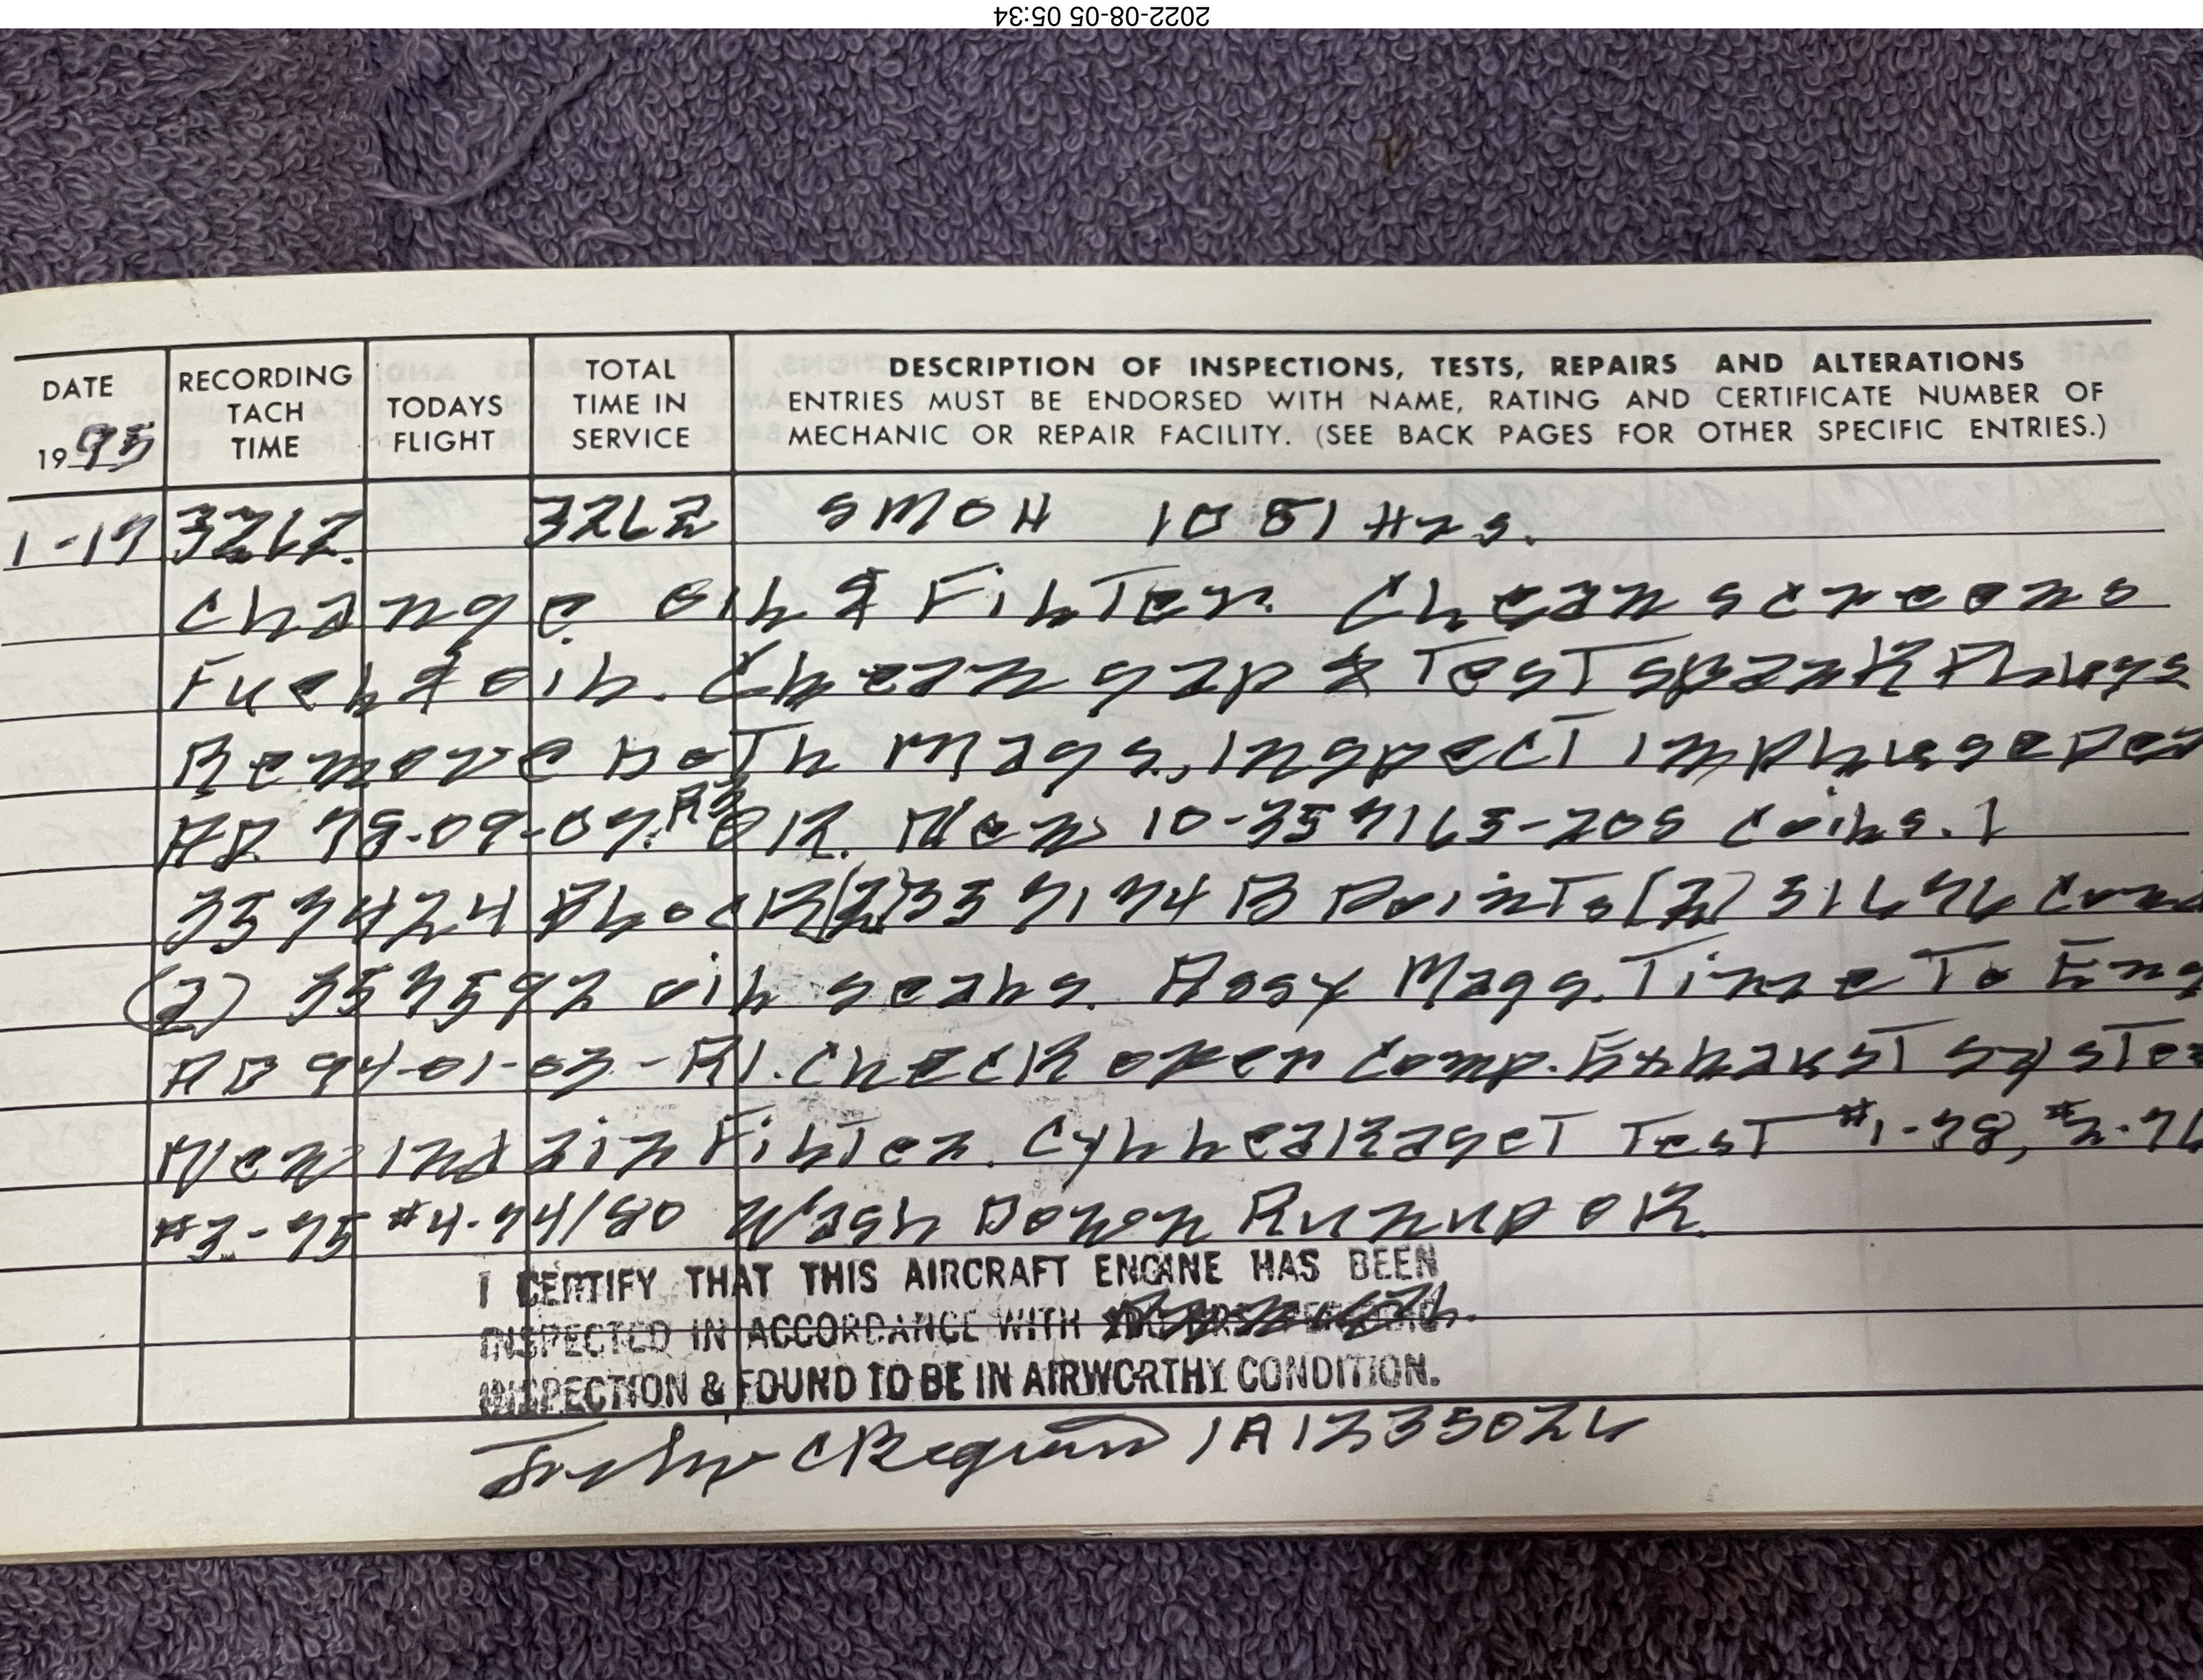 2022-08-05 05:34
DATE
1995
RECORDING
TACH
TIME
TODAYS
FLIGHT
TOTAL
TIME IN
SERVICE
DESCRIPTION OF INSPECTIONS, TESTS, REPAIRS AND ALTERATIONS
ENTRIES MUST BE ENDORSED WITH NAME, RATING AND CERTIFICATE NUMBER OF
MECHANIC OR REPAIR FACILITY. (SEE BACK PAGES FOR OTHER SPECIFIC ENTRIES.)
1-17 3262. 3262 SMOH 1081 Hrs.
Change oil & Filter. Clean screens
Fuel & oil. Clean gap & Test spark Plugs
Remove both Mags, inspect impluse per
AD 78-09-07.R3 OK. New 10-357165-205 Coils. 1
357424 Block (2) 357174 B Points (2) 51676 Cond
(2) 357592 oil seals. Assy Mags. Time To Eng
AD 94-01-03-R1. Check oper Comp. Exhaust System
New ind air Filter. Cyl leakaget Test #1-78, #2-76
#3-75 #4-74/80 Wash Down Runup OK.
I CERTIFY THAT THIS AIRCRAFT ENGINE HAS BEEN
INSPECTED IN ACCORDANCE WITH
INSPECTION & FOUND TO BE IN AIRWORTHY CONDITION.
IA 1235026